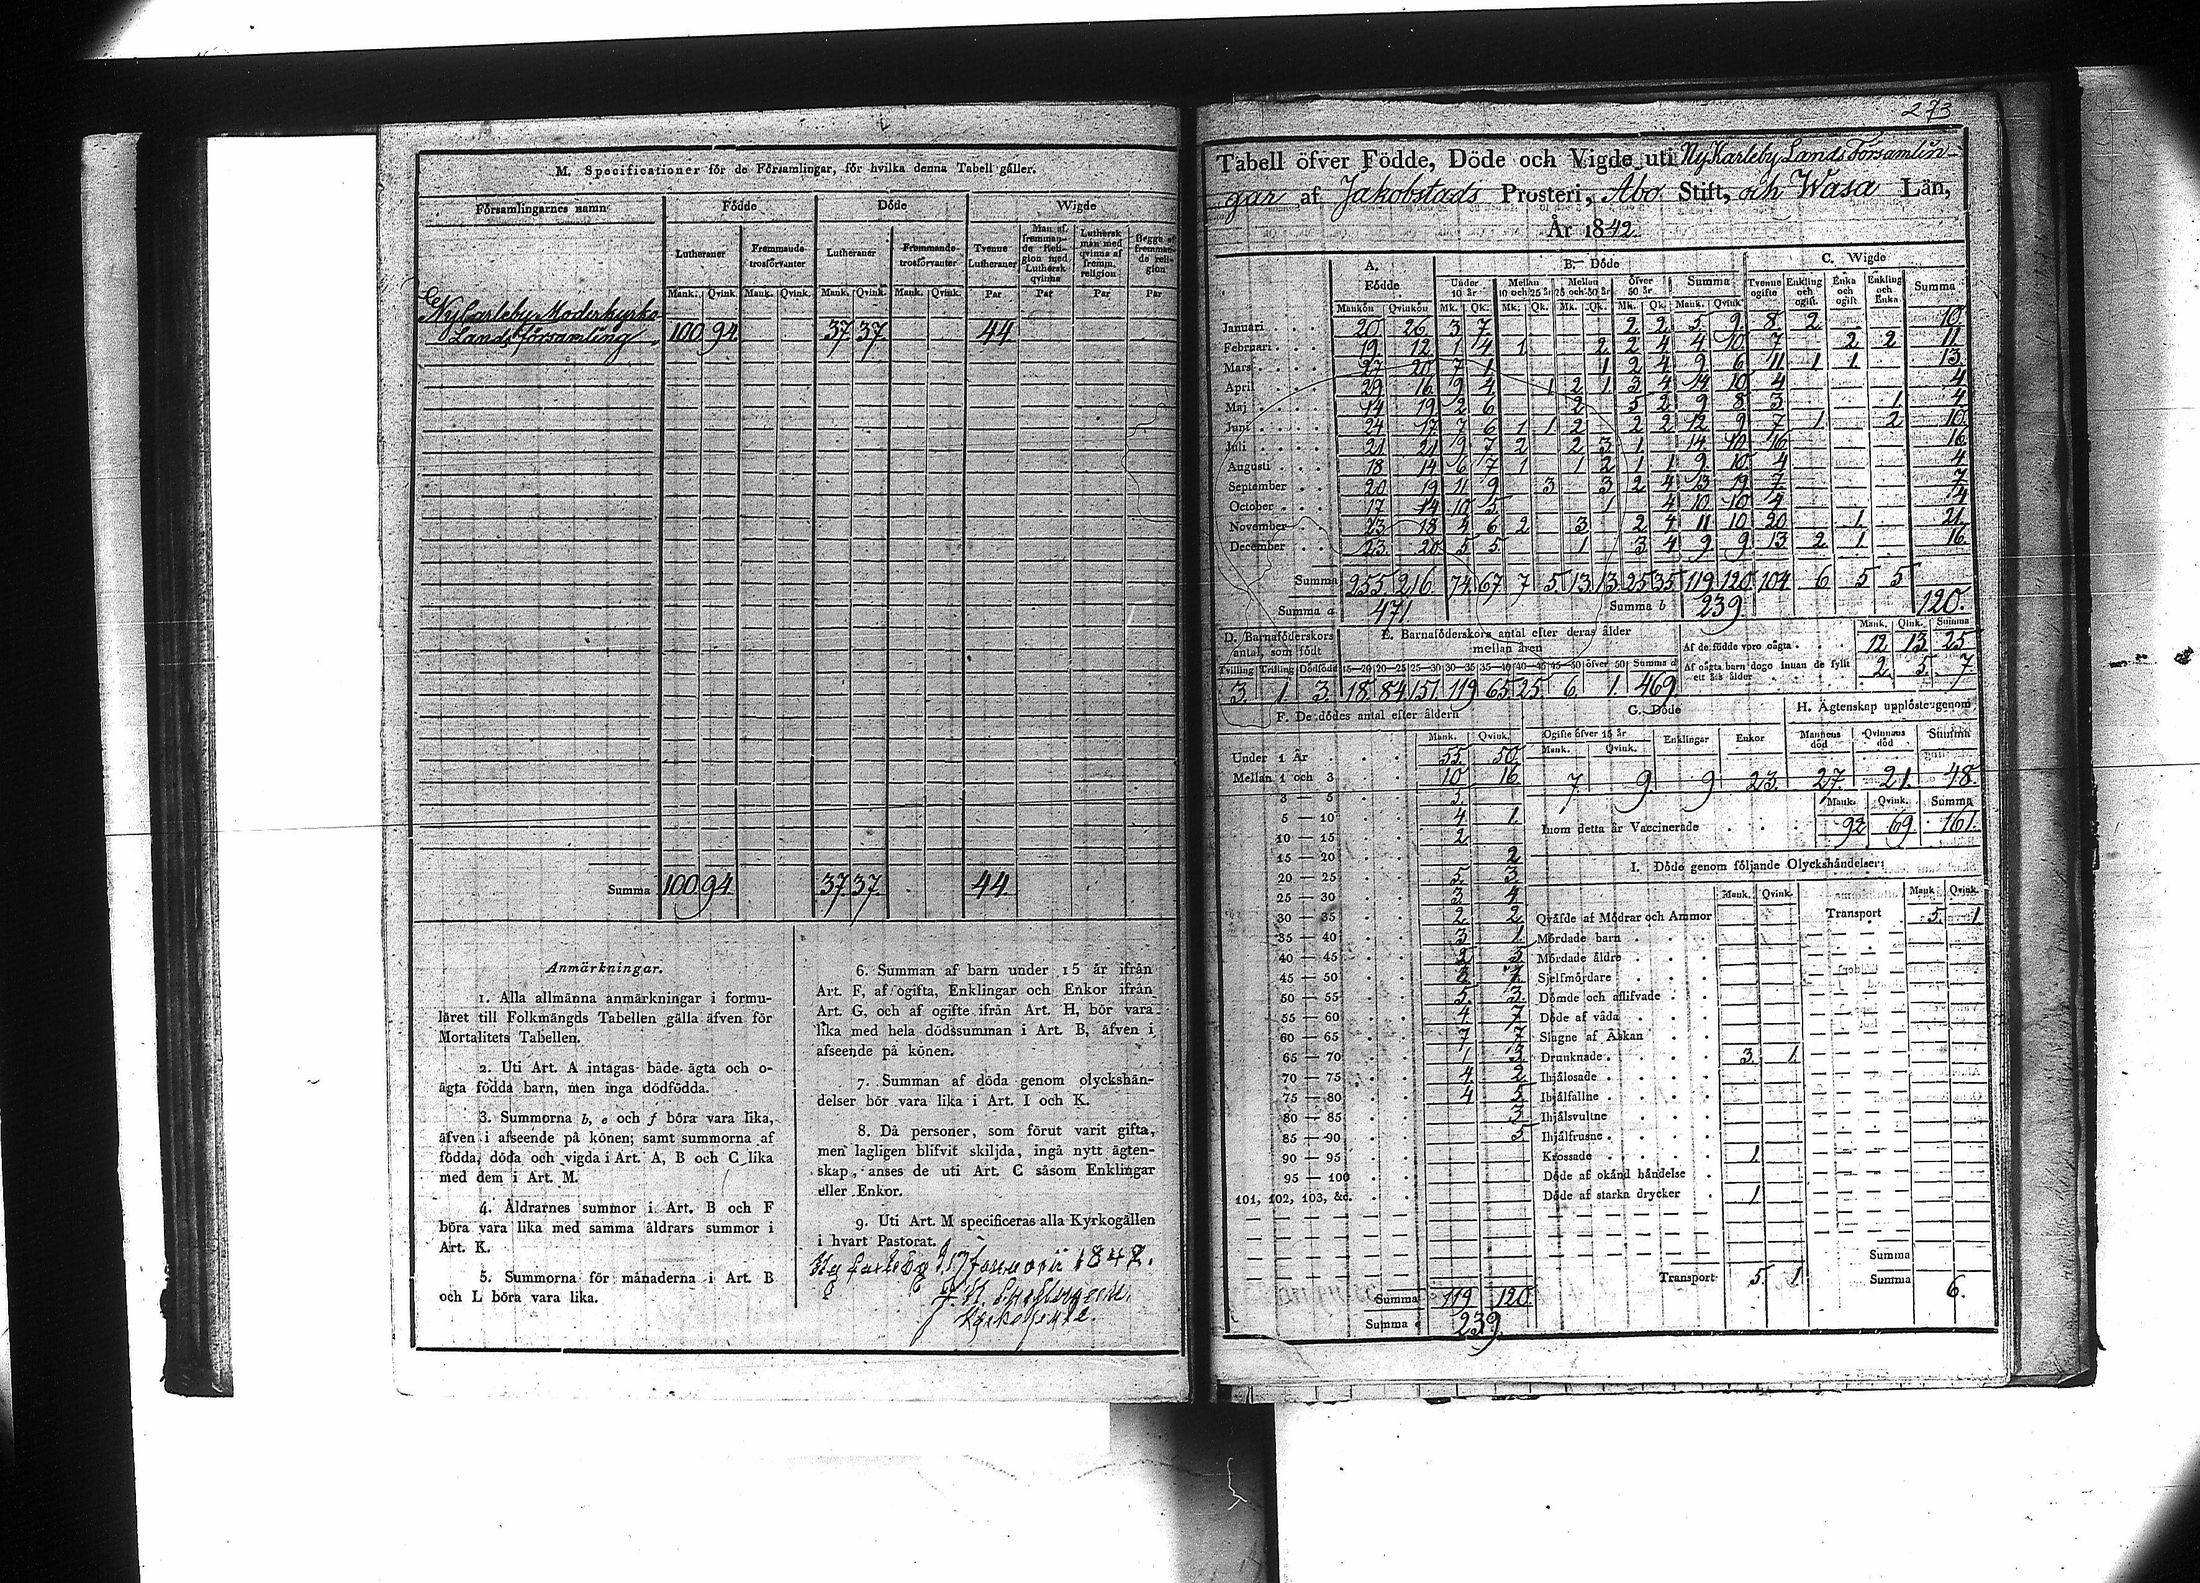 M. Specificationer för de Församlingar, för hvilka denna Tabell gäller.
Församlingarnes namn | Födde | Döde | Wigde
Lutheraner | Frammande trosförvanter | Lutheraner | Frammande trosförvanter | Tvenne Lutheraner | Man af fremmande Religion med Luthersk qvinna | Luthersk man med qvinna af fremm. religion | Begge af fremmande religion
Mank. | Qvink. | Mank. | Qvink. | Mank. | Qvink. | Mank. | Qvink. | Par | Par | Par | Par
NyCarleby Moderkyrko
Lands församling | 100 | 94 | 37 | 37 | 44
Summa | 100 | 94 | 37 | 37 | 44
Anmärkningar.
1. Alla allmänna anmärkningar i formu-
läret till Folkmängds Tabellen gälla äfven för
Mortalitets Tabellen.
2. Uti Art. A intagas både ägta och o-
ägta födda barn, men inga dödfödda.
3. Summorna b, e och f böra vara lika,
äfven i afseende på könen; samt summorna af
födda, döda och vigda i Art. A, B och C lika
med dem i Art. M.
4. Åldrarnes summor i Art. B och F
böra vara lika med samma åldrars summor i
Art. K.
5. Summorna för månaderna i Art. B
och L böra vara lika.
6. Summan af barn under 15 år ifrån
Art. F, af ogifta, Enklingar och Enkor ifrån
Art. G, och af ogifte ifrån Art. H, bör vara
lika med hela dödssumman i Art. B, äfven i
afseende på könen.
7. Summan af döda genom olyckshän-
delser bör vara lika i Art. I och K.
8. Då personer, som förut varit gifta,
men lagligen blifvit skiljda, ingå nytt ägten-
skap, anses de uti Art. C såsom Enklingar
eller Enkor.
9. Uti Art. M specificeras alla Kyrkogällen
i hvart Pastorat.
Januarii 1847.
273
Tabell öfver Födde, Döde och Vigde uti NyKarleby Lands Församlin-
gar af Jakobstads Prosteri, Åbo Stift, och Wasa Län,
År 1842.
A. Födde | B. Döde | C. Wigde
Under 10 år | Mellan 10 och 25 år | Mellan 25 och 50 år | öfver 50 år | Summa | Tvenne ogifte | Enkling och ogift | Enka och ogift | Enkling och Enka | Summa
Mankön | Qvinkön | Mk. | Qk. | Mk. | Qk. | Mk. | Qk. | Mk. | Qk. | Mank. | Qvink.
Januari | 20 | 26 | 3 | 7 | 2 | 2 | 5 | 9 | 8 | 2 | 10
Februari | 19 | 12 | 1 | 4 | 1 | 2 | 2 | 4 | 4 | 10 | 7 | 2 | 2 | 11
Mars | 27 | 20 | 7 | 1 | 1 | 2 | 4 | 9 | 6 | 11 | 1 | 1 | 13
April | 29 | 16 | 9 | 4 | 1 | 2 | 1 | 3 | 4 | 14 | 10 | 4 | 4
Maj | 14 | 19 | 2 | 6 | 2 | 5 | 2 | 9 | 8 | 3 | 1 | 4
Juni | 24 | 17 | 7 | 6 | 1 | 1 | 2 | 2 | 2 | 12 | 9 | 7 | 1 | 2 | 10
Juli | 21 | 21 | 9 | 7 | 2 | 2 | 3 | 1 | 14 | 10 | 16 | 16
Augusti | 18 | 14 | 6 | 7 | 1 | 1 | 2 | 1 | 1 | 9 | 10 | 4 | 4
September | 20 | 19 | 11 | 9 | 3 | 3 | 2 | 4 | 13 | 19 | 7 | 7
October | 17 | 14 | 10 | 5 | 1 | 4 | 10 | 10 | 4 | 4
November | 23 | 18 | 4 | 6 | 2 | 3 | 2 | 4 | 11 | 10 | 20 | 1 | 21
December | 23 | 20 | 5 | 5 | 1 | 3 | 4 | 9 | 9 | 13 | 2 | 1 | 16
Summa | 255 | 216 | 74 | 67 | 7 | 5 | 13 | 13 | 25 | 35 | 119 | 120 | 104 | 6 | 5 | 5
Summa a | 471 | Summa b | 239 | 120.
D. Barnaföderskors antal som födt | E. Barnaföderskors antal efter deras ålder mellan åren | Mank. | Qink. | Summa
Af de födde voro oägta | 12 | 13 | 25
Tvilling | Trilling | Dödfödd | 15—20 | 20—25 | 25—30 | 30—35 | 35—40 | 40—45 | 45—50 | öfver 50 | Summa d
Af oägta barn dogo innan de fyllt ett års ålder | 2 | 5 | 7
3. | 1. | 3. | 18 | 84 | 151 | 119 | 65 | 25 | 6 | 1. | 469
F. De dödes antal efter åldern
Mank. | Qvink.
Under 1 År | 55 | 50
Mellan 1 och 3 | 10 | 16
3 — 5 | 5
5 — 10 | 4 | 1.
10 — 15 | 2
15 — 20 | 2
20 — 25 | 5 | 3
25 — 30 | 3 | 4
30 — 35 | 2 | 2
35 — 40 | 3 | 1
40 — 45
45 — 50
50 — 55 | 5 | 3
55 — 60 | 4 | 7
60 — 65 | 7 | 7
65 — 70 | 1 | 3
70 — 75 | 4 | 2
75 — 80 | 4 | 5
80 — 85 | 3
85 — 90 | 5
90 — 95
95 — 100
101, 102, 103, &c.
Summa | 119 | 120
Summa | 239
G. Döde | H. Ägtenskap upplöste genom
Ogifte öfver 15 år | Enklingar | Enkor | Mannens död | Qvinnans död | Summa
Mank. | Qvink.
7. | 9. | 9 | 23. | 27. | 21. | 48.
Mank. | Qvink. | Summa
Inom detta år Vaccinerade | 92 | 69 | 161.
I. Döde genom följande Olyckshändelser:
Mank. | Qvink. | Mank | Qvink.
Qväfde af Mödrar och Ammor | Transport | 5. | 1.
Mördade barn
Mördade äldre
Sjelfmördare
Dömde och aflifvade
Döde af våda
Slagne af Åskan
Drunknade | 3. | 1.
Ihjälosade
Ihjälfallne
Ihjälsvultne
Ihjälfrusne
Krossade | 1.
Döde af okänd händelse
Döde af starka drycker | 1
Summa
Transport | 5. | 1. | Summa | 6.